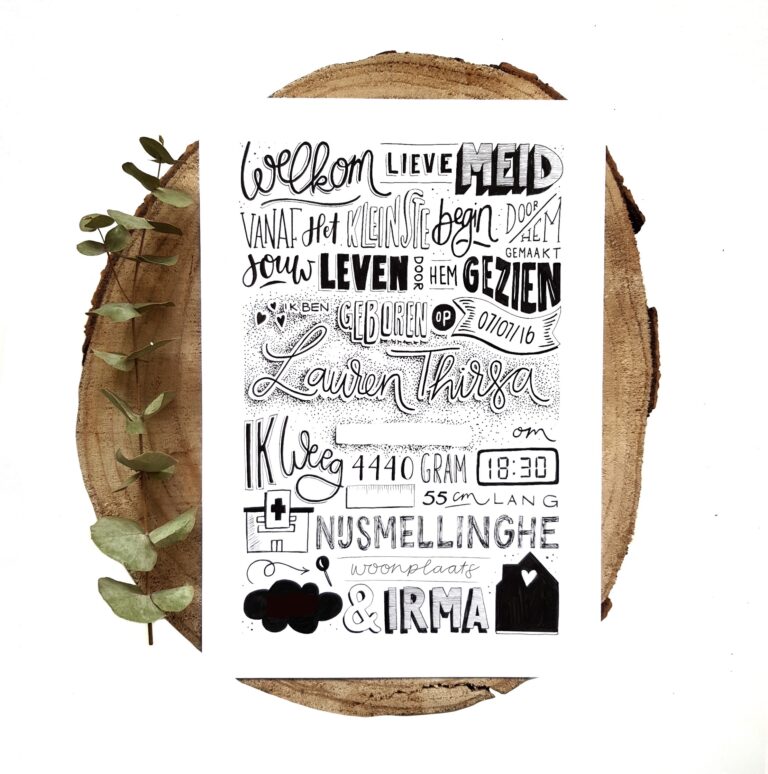 welkom LIEVE MEID
VANAF Het KLEINSTE begin DOOR HEM GEMAAKT
Jouw LEVEN DOOR HEM GEZIEN
IK BEN GEBOREN OP 07/07/16
Lauren Thirsa
om
IK Weeg 4440 GRAM 18:30
55 cm LANG
NIJSMELLINGHE
woonplaats
& IRMA